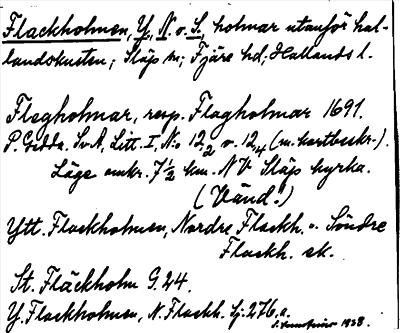 Flackholmen, Y., N. o. S., holmar utanför hal-
landskusten; Släp sn; Fjäre hd; Hallands l.
Flegholmar, resp. Flagholmar 1691.
P. Gedda. SvA, Litt. I, No 12₂ o. 12₄ (m. kartbeskr.).
Läge omkr. 7½ km. NV Släp kyrka.
(Vänd.)
Ytt. Flackholmen, Nordre Flackh. o. Söndre
Flackh. ek.
St. Fläckholm G. 24.
Y. Flackholmen, N. Flackh. Sj. 276.a.
1938.